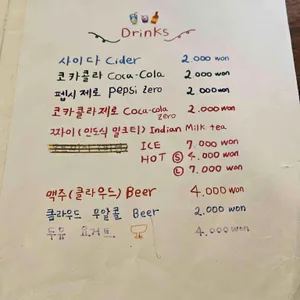 Drinks
사이다 Cider 2.000 won
코카콜라 Coca-Cola 2.000 won
펩시 제로 pepsi zero 2.000 won
코카콜라 제로 Coca-Cola zero 2.000 won
짜이(인도식 밀크티) Indian Milk tea
ICE 7.000 won
HOT Ⓢ 4.000 won
Ⓛ 7.000 won
맥주(클라우드) Beer 4.000 won
클라우드 무알콜 Beer 2.000 won
두유 요거트 4.000 won